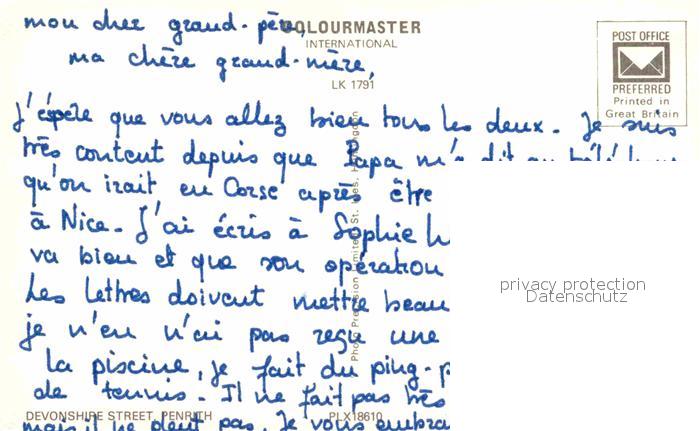 mon cher grand-père,
COLOURMASTER
INTERNATIONAL
ma chère grand-mère,
LK 1791
POST OFFICE
PREFERRED
Printed in
Great Britain
J'éspère que vous allez bien tous les deux. Je suis
très content depuis que Papa m'a dit au
qu'on irait en Corse après être
à Nice. J'ai écris à Sophie
va bien et que son opération
Les lettres doivent mettre beau
je n'en n'ai pas reçu une
la piscine, je fait du ping-p
de tennis. Il ne fait pas très
mais il ne pleut pas. Je vous embra
Photo Precision Limited, St. Ives, Huntingdon
DEVONSHIRE STREET, PENRITH
PLX18610
privacy protection
Datenschutz